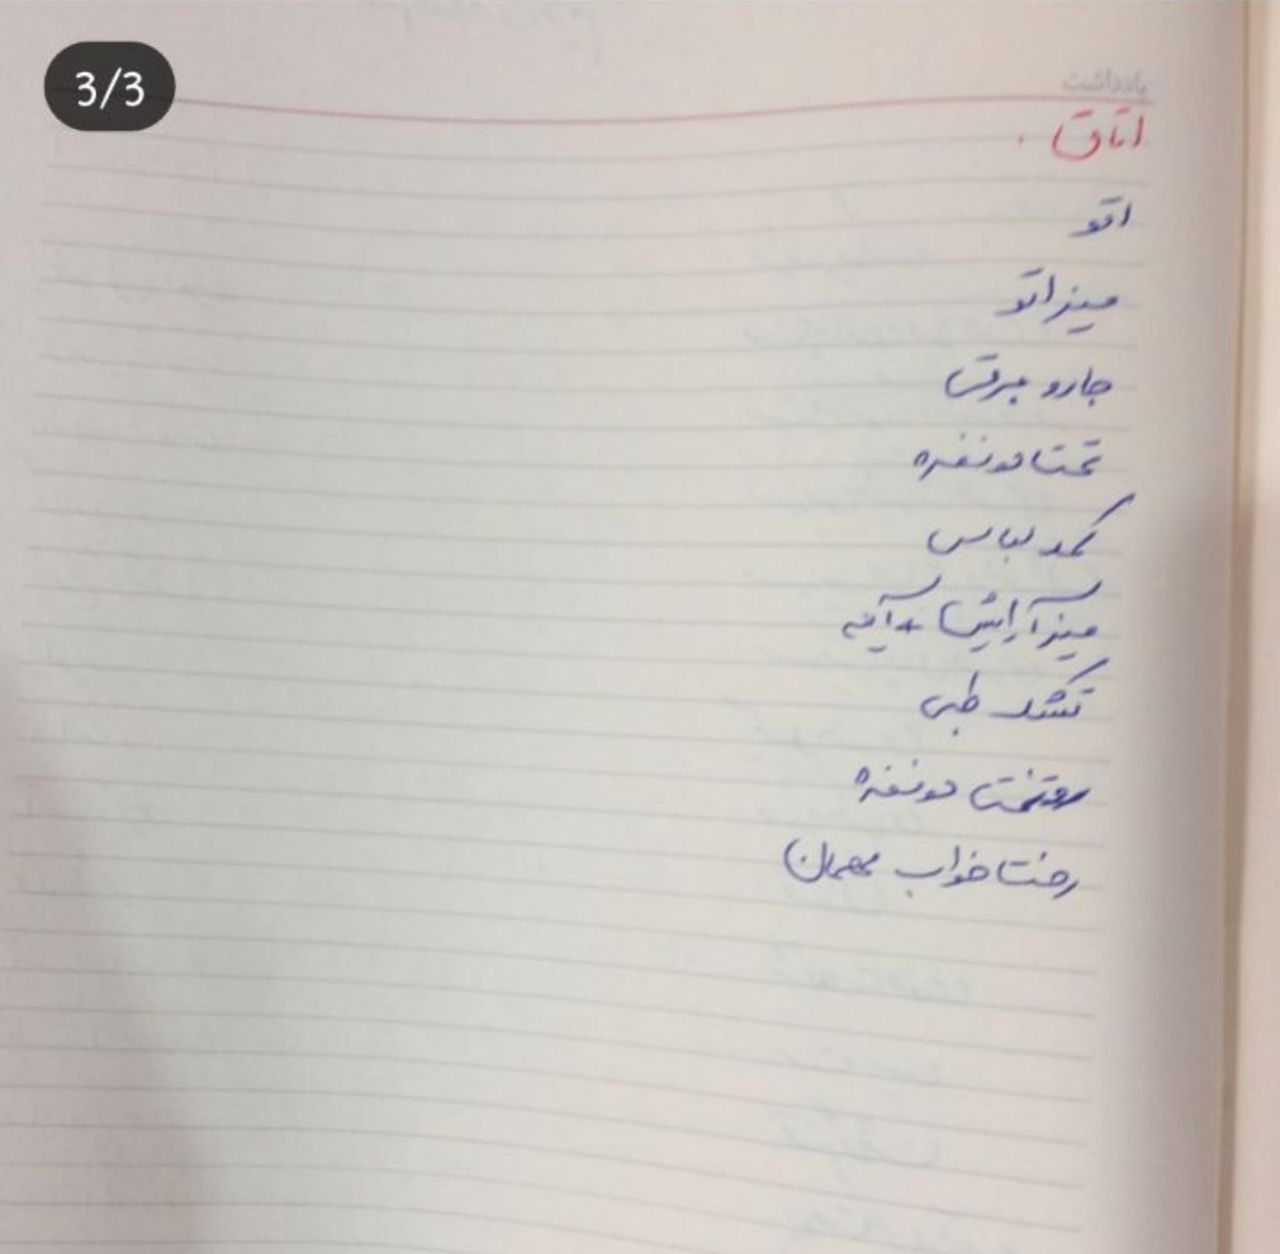 3/3
یادداشت
اتاق .
اتو
میز اتو
جارو برقی
تخت دو نفره
کمد لباس
میز آرایش + آینه
تشک طبی
روتختی دونفره
رخت خواب مهمان